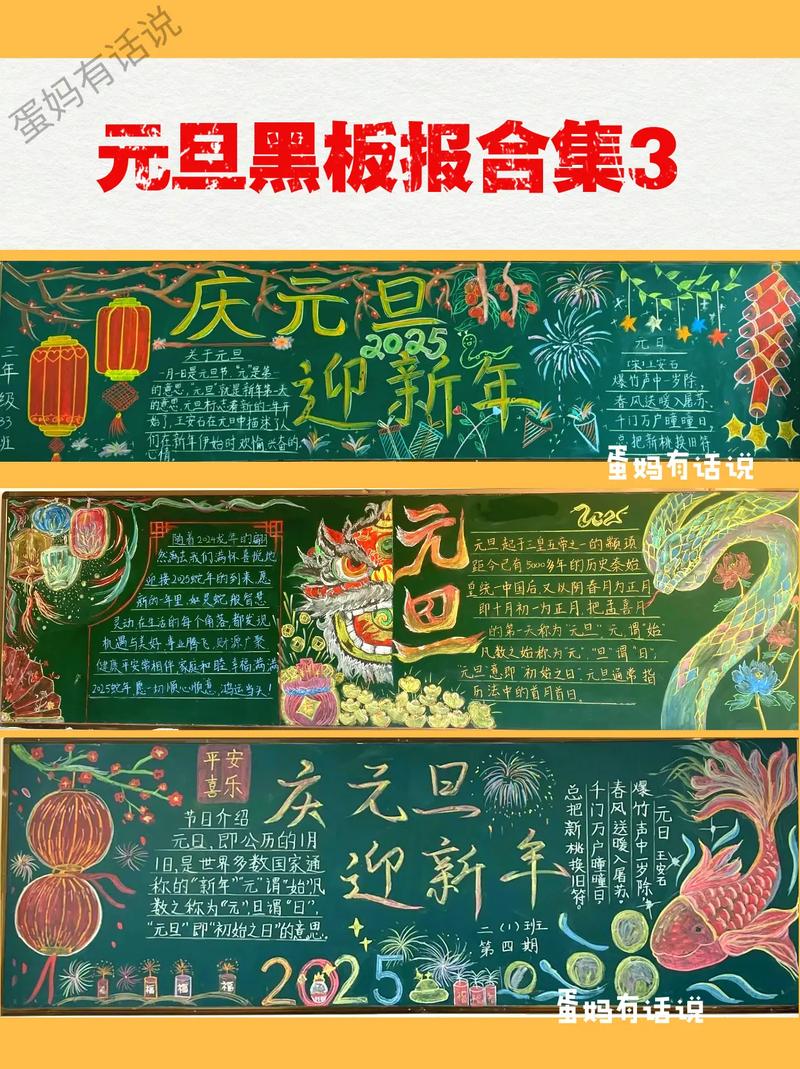 蛋妈有话说
元旦黑板报合集3
庆元旦
2025
迎新年
三年级
33
班
关于元旦
一月一日是元旦节,"元"是第一
的意思,"元旦"就是新年第一天
的意思,元旦标志着新的一年开
始了,王安石在元旦中描述了人
们在新年伊始时欢愉兴奋的
心情。
元日
宋:王安石
爆竹声中一岁除,
春风送暖入屠苏。
千门万户曈曈日
总把新桃换旧符
蛋妈有话说
随着2024龙年的翩
然离去我们满怀喜悦地
迎接2025蛇年的到来,愿
新的一年里如灵蛇般智慧
灵动,在生活的每个角落,都发现
机遇与美好,事业腾飞,财源广聚
健康平安常相伴家庭和睦幸福满满
2025蛇年,愿一切顺心顺意,鸿运当头!
元旦
2025
元旦,起于三皇五帝之一的颛顼
距今已有5000多年的历史秦始
皇统一中国后,又以阴春月为正月
即十月初一为正月,把孟喜月
的第一天称为"元旦"元,谓"始"
凡数之始称为"元","旦"谓"日",
"元旦"意即"初始之日",元旦通常指
历法中的首月首日。
平安
喜乐
庆元旦
迎新年
节日介绍
元旦,即公历的1月
1日,是世界多数国家通
称的"新年""元"谓"始"凡
数之称为"元",旦谓"日",
"元旦"即"初始之日"的意思.
元日 王安石
爆竹声中一岁除,
春风送暖入屠苏.
千门万户曈曈日,
总把新桃换旧符.
二(1)班
第四期
福
福
福
2025
蛋妈有话说